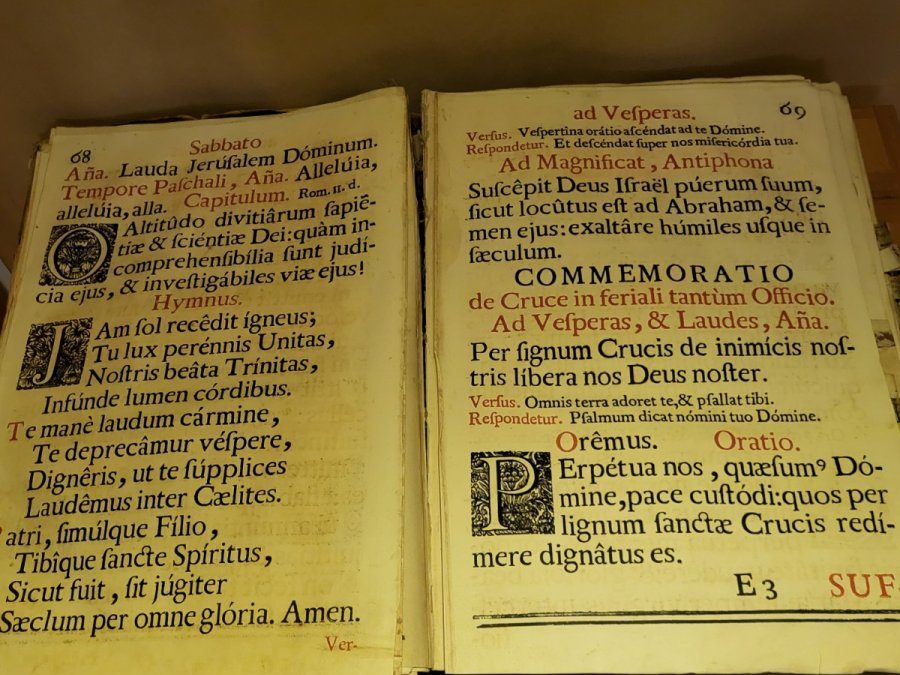 68
Sabbato
Aña. Lauda Jerúſalem Dóminum.
Tempore Paſchali, Aña. Allelúia,
allelúia, alla. Capitulum. Rom. 11. d.
O Altitûdo divitiârum ſapiẽ-
tiæ & ſciéntiæ Dei: quàm in-
comprehenſibília ſunt judí-
cia ejus, & inveſtigábiles viæ ejus!
Hymnus.
JAm ſol recêdit ígneus;
Tu lux perénnis Unitas,
Noſtris beâta Trínitas,
Infúnde lumen córdibus.
Te manè laudum cármine,
Te deprecâmur véſpere,
Dignêris, ut te ſúpplices
Laudêmus inter Cælites.
Patri, ſimúlque Fílio,
Tibîque ſancte Spíritus,
Sicut fuit, ſit júgiter
Sæclum per omne glória. Amen.
Ver-
ad Veſperas. 69
Verſus. Veſpertina orátio aſcéndat ad te Dómine.
Reſpondetur. Et deſcéndat ſuper nos miſericórdia tua.
Ad Magnificat, Antiphona
Suſcêpit Deus Iſraël púerum ſuum,
ſicut locûtus eſt ad Abraham, & ſe-
men ejus: exaltâre húmiles uſque in
ſæculum.
COMMEMORATIO
de Cruce in feriali tantùm Officio.
Ad Veſperas, & Laudes, Aña.
Per ſignum Crucis de inimícis noſ-
tris líbera nos Deus noſter.
Verſus. Omnis terra adoret te, & pſallat tibi.
Reſpondetur. Pſalmum dicat nómini tuo Dómine.
Orêmus. Oratio.
PErpétua nos, quæſumꝰ Dó-
mine, pace cuſtódi: quos per
lignum ſanctæ Crucis redí-
mere dignâtus es.
E3 SUF-